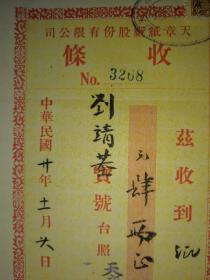 天章紙廠股份有限公司
收條
No. 3268
茲收到
元肆兩正
劉靖基
寶號台照
中華民國廿年十一月六日